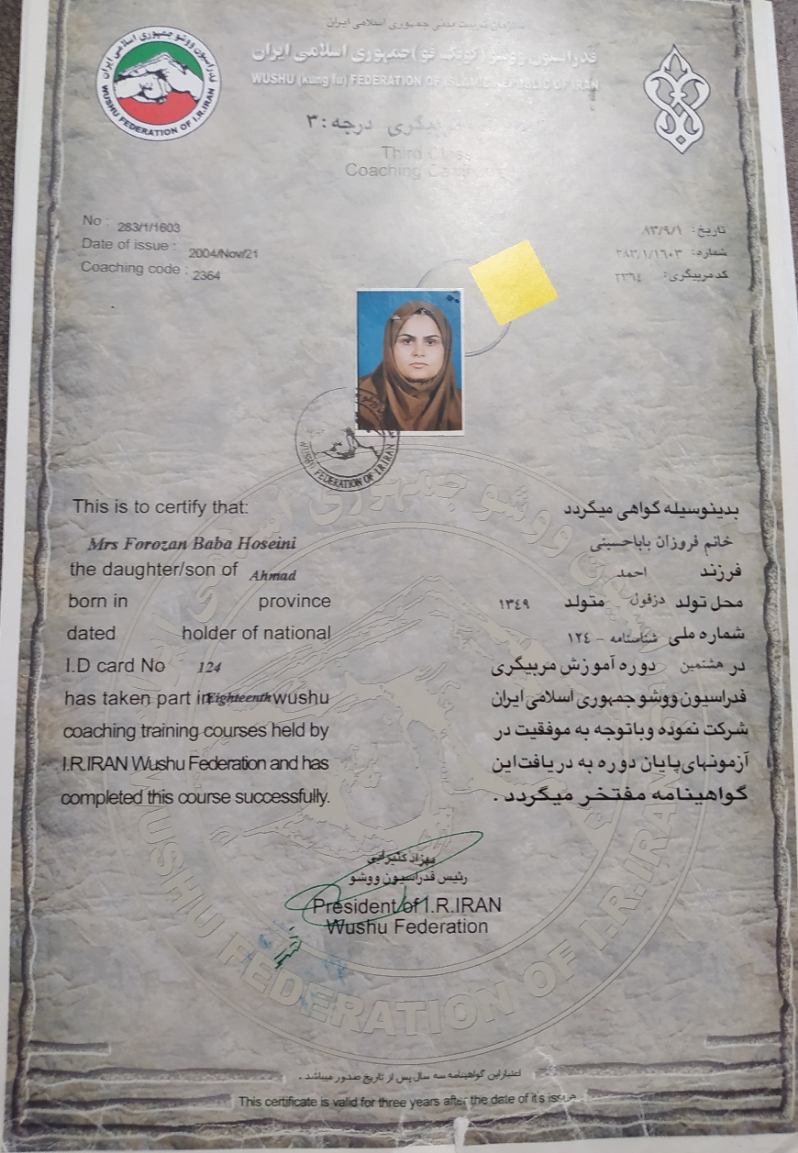 سازمان تربیت بدنی جمهوری اسلامی ایران
فدراسیون ووشو (کونگ فو) جمهوری اسلامی ایران
WUSHU (kung fu) FEDERATION OF ISLAMIC REPUBLIC OF IRAN
فدراسیون ووشو جمهوری اسلامی ایران
WUSHU FEDERATION OF I.R.IRAN
مربیگری درجه: ۳
Third Class
Coaching
No : 283/1/1603
Date of issue : 2004/Nov/21
Coaching code : 2364
تاریخ: ۸۳/۹/۱
شماره: ۲۸۳/۱/۱۶۰۳
کدمربیگری: ۲۳۶۴
WUSHU FEDERATION OF I.R.IRAN
This is to certify that:
Mrs Forozan Baba Hoseini
the daughter/son of Ahmad
born in province
dated holder of national
I.D card No 124
has taken part in Eighteenth wushu
coaching training courses held by
I.R.IRAN Wushu Federation and has
completed this course successfully.
بدینوسیله گواهی میگردد
خانم فروزان باباحسینی
فرزند احمد
محل تولد دزفول متولد ۱۳۴۹
شماره ملی شناسنامه - ۱۲۴
در هشتمین دوره آموزش مربیگری
فدراسیون ووشو جمهوری اسلامی ایران
شرکت نموده وباتوجه به موفقیت در
آزمونهای پایان دوره به دریافت این
گواهینامه مفتخر میگردد .
بهزاد کتیرایی
رئیس فدراسیون ووشو
President of I.R.IRAN
Wushu Federation
WUSHU FEDERATION OF I.R.IRAN
اعتبار این گواهینامه سه سال پس از تاریخ صدور میباشد .
This certificate is valid for three years after the date of its issue .